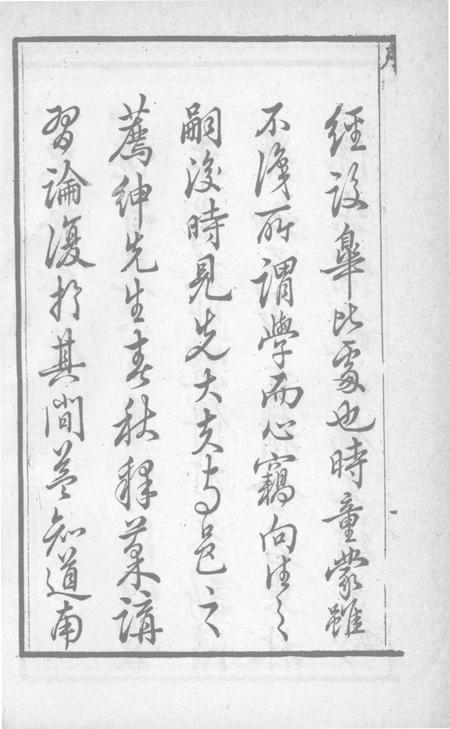 經設皐比處也時童蒙雖
不識所謂學而心竊向往之
嗣後時見先大夫與邑之
薦紳先生春秋釋菜講
習論復於其間益知道南